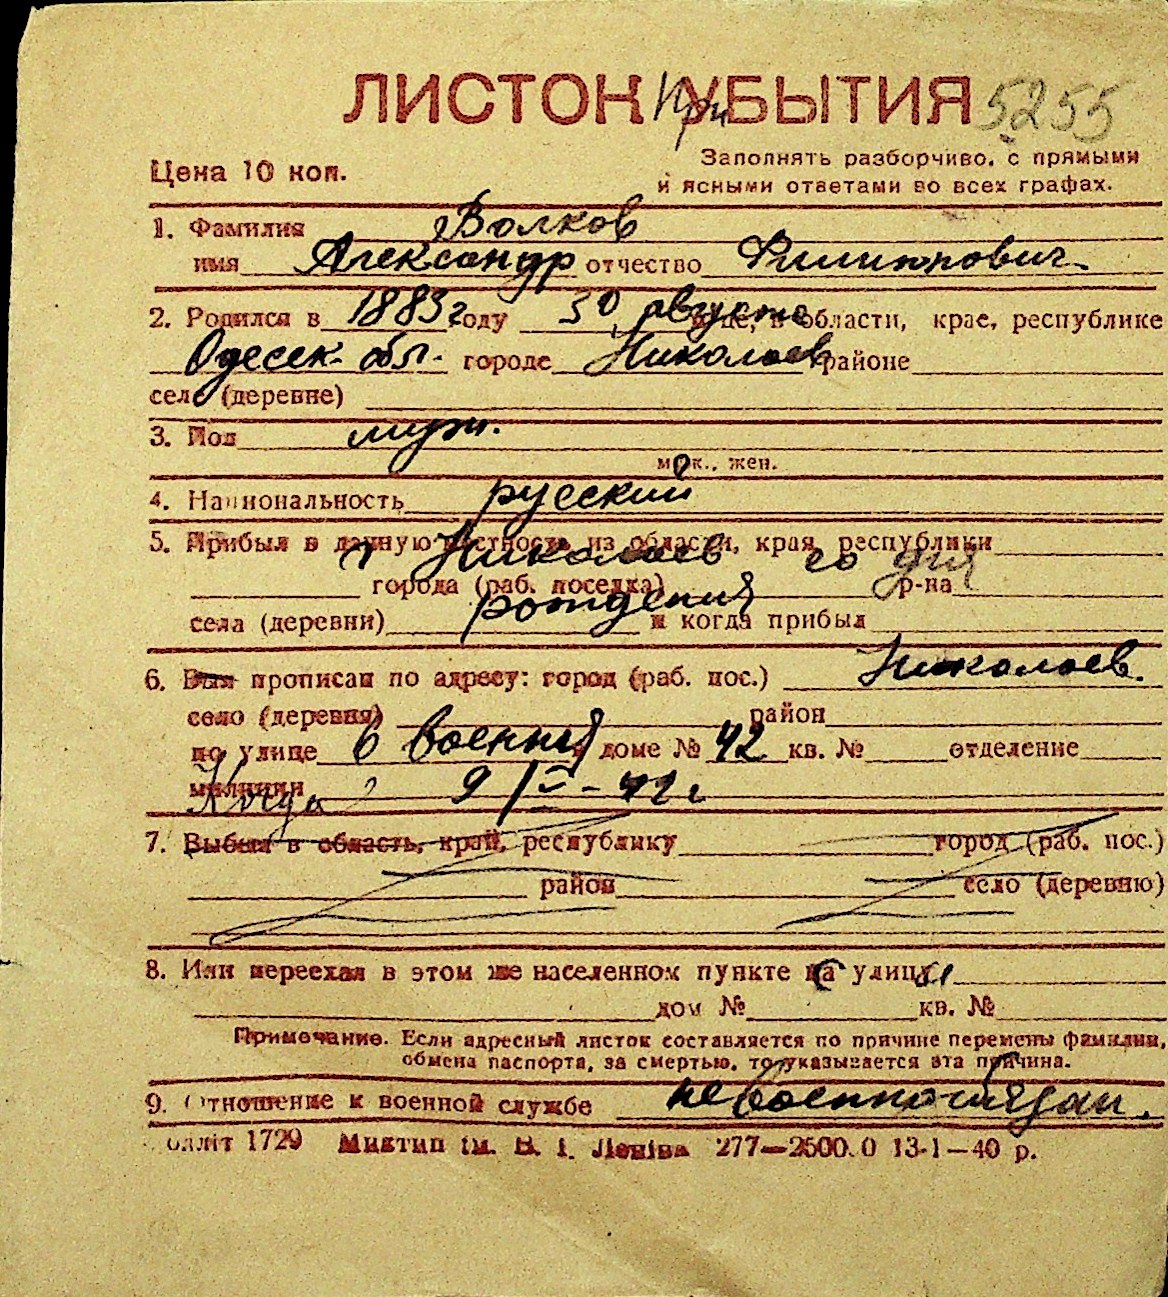 ЛИСТОК При УБЫТИЯ 5255
Цена 10 коп.
Заполнять разборчиво, с прямыми
и ясными ответами во всех графах.
1. Фамилия Волков
имя Александр отчество Филиппович
2. Родился в 1883 г. году 30 августа це, в области, крае, республике
Одесск. обл. городе Николаев районе
село (деревне)
3. Пол муж.
муж., жен.
4. Национальность русский
5. Прибыл в данную местность из области, края, республики
г Николаев со дня
города (раб. поселка) р-на
рождения
села (деревни) и когда прибыл
6. Был прописан по адресу: город (раб. пос.) Николаев.
село (деревня) район
по улице 6 Военная доме № 42 кв. № отделение
милиции Когда? 9/IV-42 г
7. Выбыл в область, край, республику город (раб. пос.)
район село (деревню)
8. Или переехал в этом же населенном пункте с улицы
дом № кв. №
Примечание. Если адресный листок составляется по причине перемены фамилии,
обмена паспорта, за смертью, то указывается эта причина.
9. Отношение к военной службе невоеннообязан.
олліт 1729 Миктип ім. В. І. Леніва 277—2500.0 13-1—40 р.